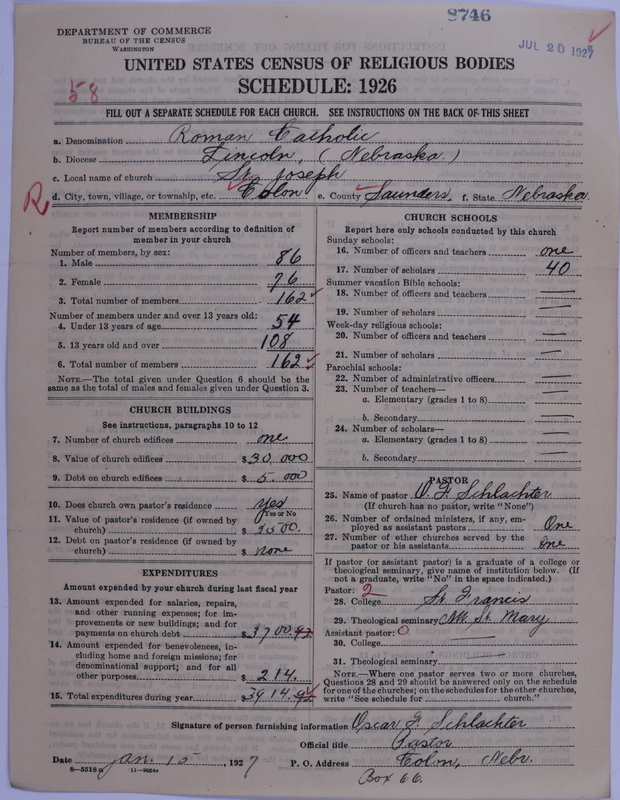 8746
JUL 20 1927
DEPARTMENT OF COMMERCE
BUREAU OF THE CENSUS
WASHINGTON
UNITED STATES CENSUS OF RELIGIOUS BODIES
SCHEDULE: 1926
58
FILL OUT A SEPARATE SCHEDULE FOR EACH CHURCH. SEE INSTRUCTIONS ON THE BACK OF THIS SHEET
a. Denomination Roman Catholic
b. Diocese Lincoln, (Nebraska)
c. Local name of church St. Joseph
R
d. City, town, village, or township, etc. Colon e. County Saunders, f. State Nebraska.
MEMBERSHIP
Report number of members according to definition of member in your church
Number of members, by sex:
1. Male 86
2. Female 76
3. Total number of members 162
Number of members under and over 13 years old:
4. Under 13 years of age 54
5. 13 years old and over 108
6. Total number of members 162
NOTE.—The total given under Question 6 should be
same as the total of males and females given under Question 3.
CHURCH BUILDINGS
See instructions, paragraphs 10 to 12
7. Number of church edifices one
8. Value of church edifices $30,000
9. Debt on church edifices $5,000
10. Does church own pastor's residence yes
Yes or No
11. Value of pastor's residence (if owned by
church) $
12. Debt on pastor's residence (if owned by
church) $ none
EXPENDITURES
Amount expended by your church during last fiscal year
13. Amount expended for salaries, repairs,
and other running expenses; for im-
provements or new buildings; and for
payments on church debt $3700.92
14. Amount expended for benevolences, in-
cluding home and foreign missions; for
denominational support; and for all
other purposes $214.
15. Total expenditures during year $3914.92
CHURCH SCHOOLS
Report here only schools conducted by this church
Sunday schools:
16. Number of officers and teachers one
17. Number of scholars 40
Summer vacation Bible schools:
18. Number of officers and teachers —
19. Number of scholars —
Week-day religious schools:
20. Number of officers and teachers —
21. Number of scholars —
Parochial schools:
22. Number of administrative officers —
23. Number of teachers—
a. Elementary (grades 1 to 8) —
b. Secondary —
24. Number of scholars—
a. Elementary (grades 1 to 8) —
b. Secondary —
PASTOR
25. Name of pastor O. F. Schlachter
(If church has no pastor, write "None")
26. Number of ordained ministers, if any, em-
ployed as assistant pastors One
27. Number of other churches served by the
pastor or his assistants one
If pastor (or assistant pastor) is a graduate of a college or
theological seminary, give name of institution below. (If
not a graduate, write "No" in the space indicated.)
Pastor: 2
28. College St. Francis
29. Theological seminary Mt. St. Mary
Assistant pastor: 0
30. College —
31. Theological seminary
NOTE.—Where one pastor serves two or more churches,
Questions 28 and 29 should be answered only on the schedule
for one of the churches; on the schedules for the other churches,
write "See schedule for church."
Signature of person furnishing information Oscar F. Schlachter
Official title Pastor
Date Jan. 15 1927 P. O. Address Colon, Nebr.
8-5518a
Box 66.